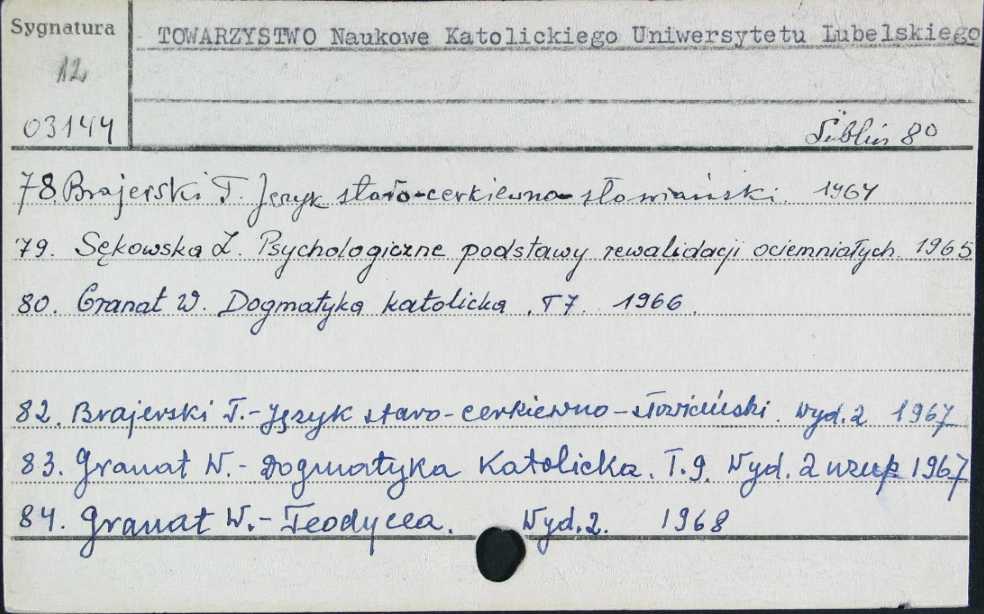 Sygnatura
TOWARZYSTWO Naukowe Katolickiego Uniwersytetu Lubelskiego
12
03144
Lublin 8°
78. Brajerski T. Język staro-cerkiewno-słowiański. 1964
79. Sękowska Z. Psychologiczne podstawy rewalidacji ociemniałych. 1965
80. Granat W. Dogmatyka katolicka. T 7. 1966.
82. Brajerski T.- Język staro-cerkiewno-słowiański. Wyd. 2 1967
83. Granat W.- Dogmatyka Katolicka. T. 9. Wyd. 2 uzup. 1967
84. Granat W.- Teodycea. Wyd. 2. 1968